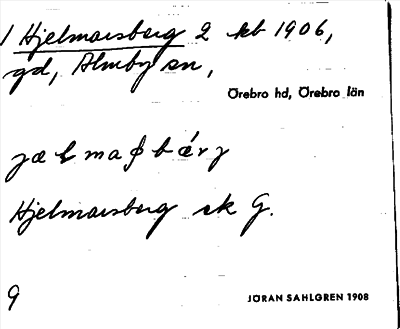 1 Hjelmarsberg 2 kb 1906,
gd, Almby sn,
Örebro hd, Örebro län
Hjelmarsberg sk G.
9
JÖRAN SAHLGREN 1908